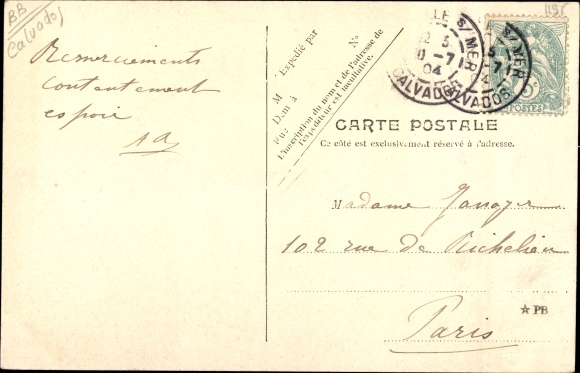 BB
Calvados
1195
Remerciements
contentement
espoir
Expédié par
M
Dem à
Rue
No
L'inscription du nom et de l'adresse de
l'expéditeur est facultative.
S/ MER
CALVADOS
S/ MER
CALVADOS
POSTES
CARTE POSTALE
Ce côté est exclusivement réservé à l'adresse.
Madame
102 rue de Richelieu
Paris
PB